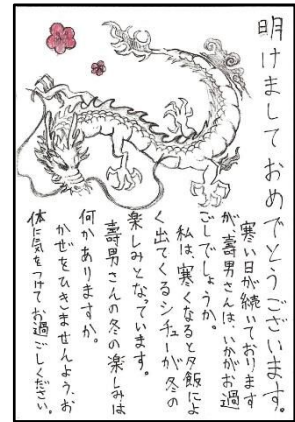 明けましておめでとうございます。
寒い日が続いております
が、壽男さんはいかがお過
ごしでしょうか。
私は、寒くなると夕飯によ
く出てくるシチューが冬の
楽しみとなっています。
壽男さんの冬の楽しみは
何かありますか。
かぜをひきませんよう、お
体に気をつけてお過ごしください。